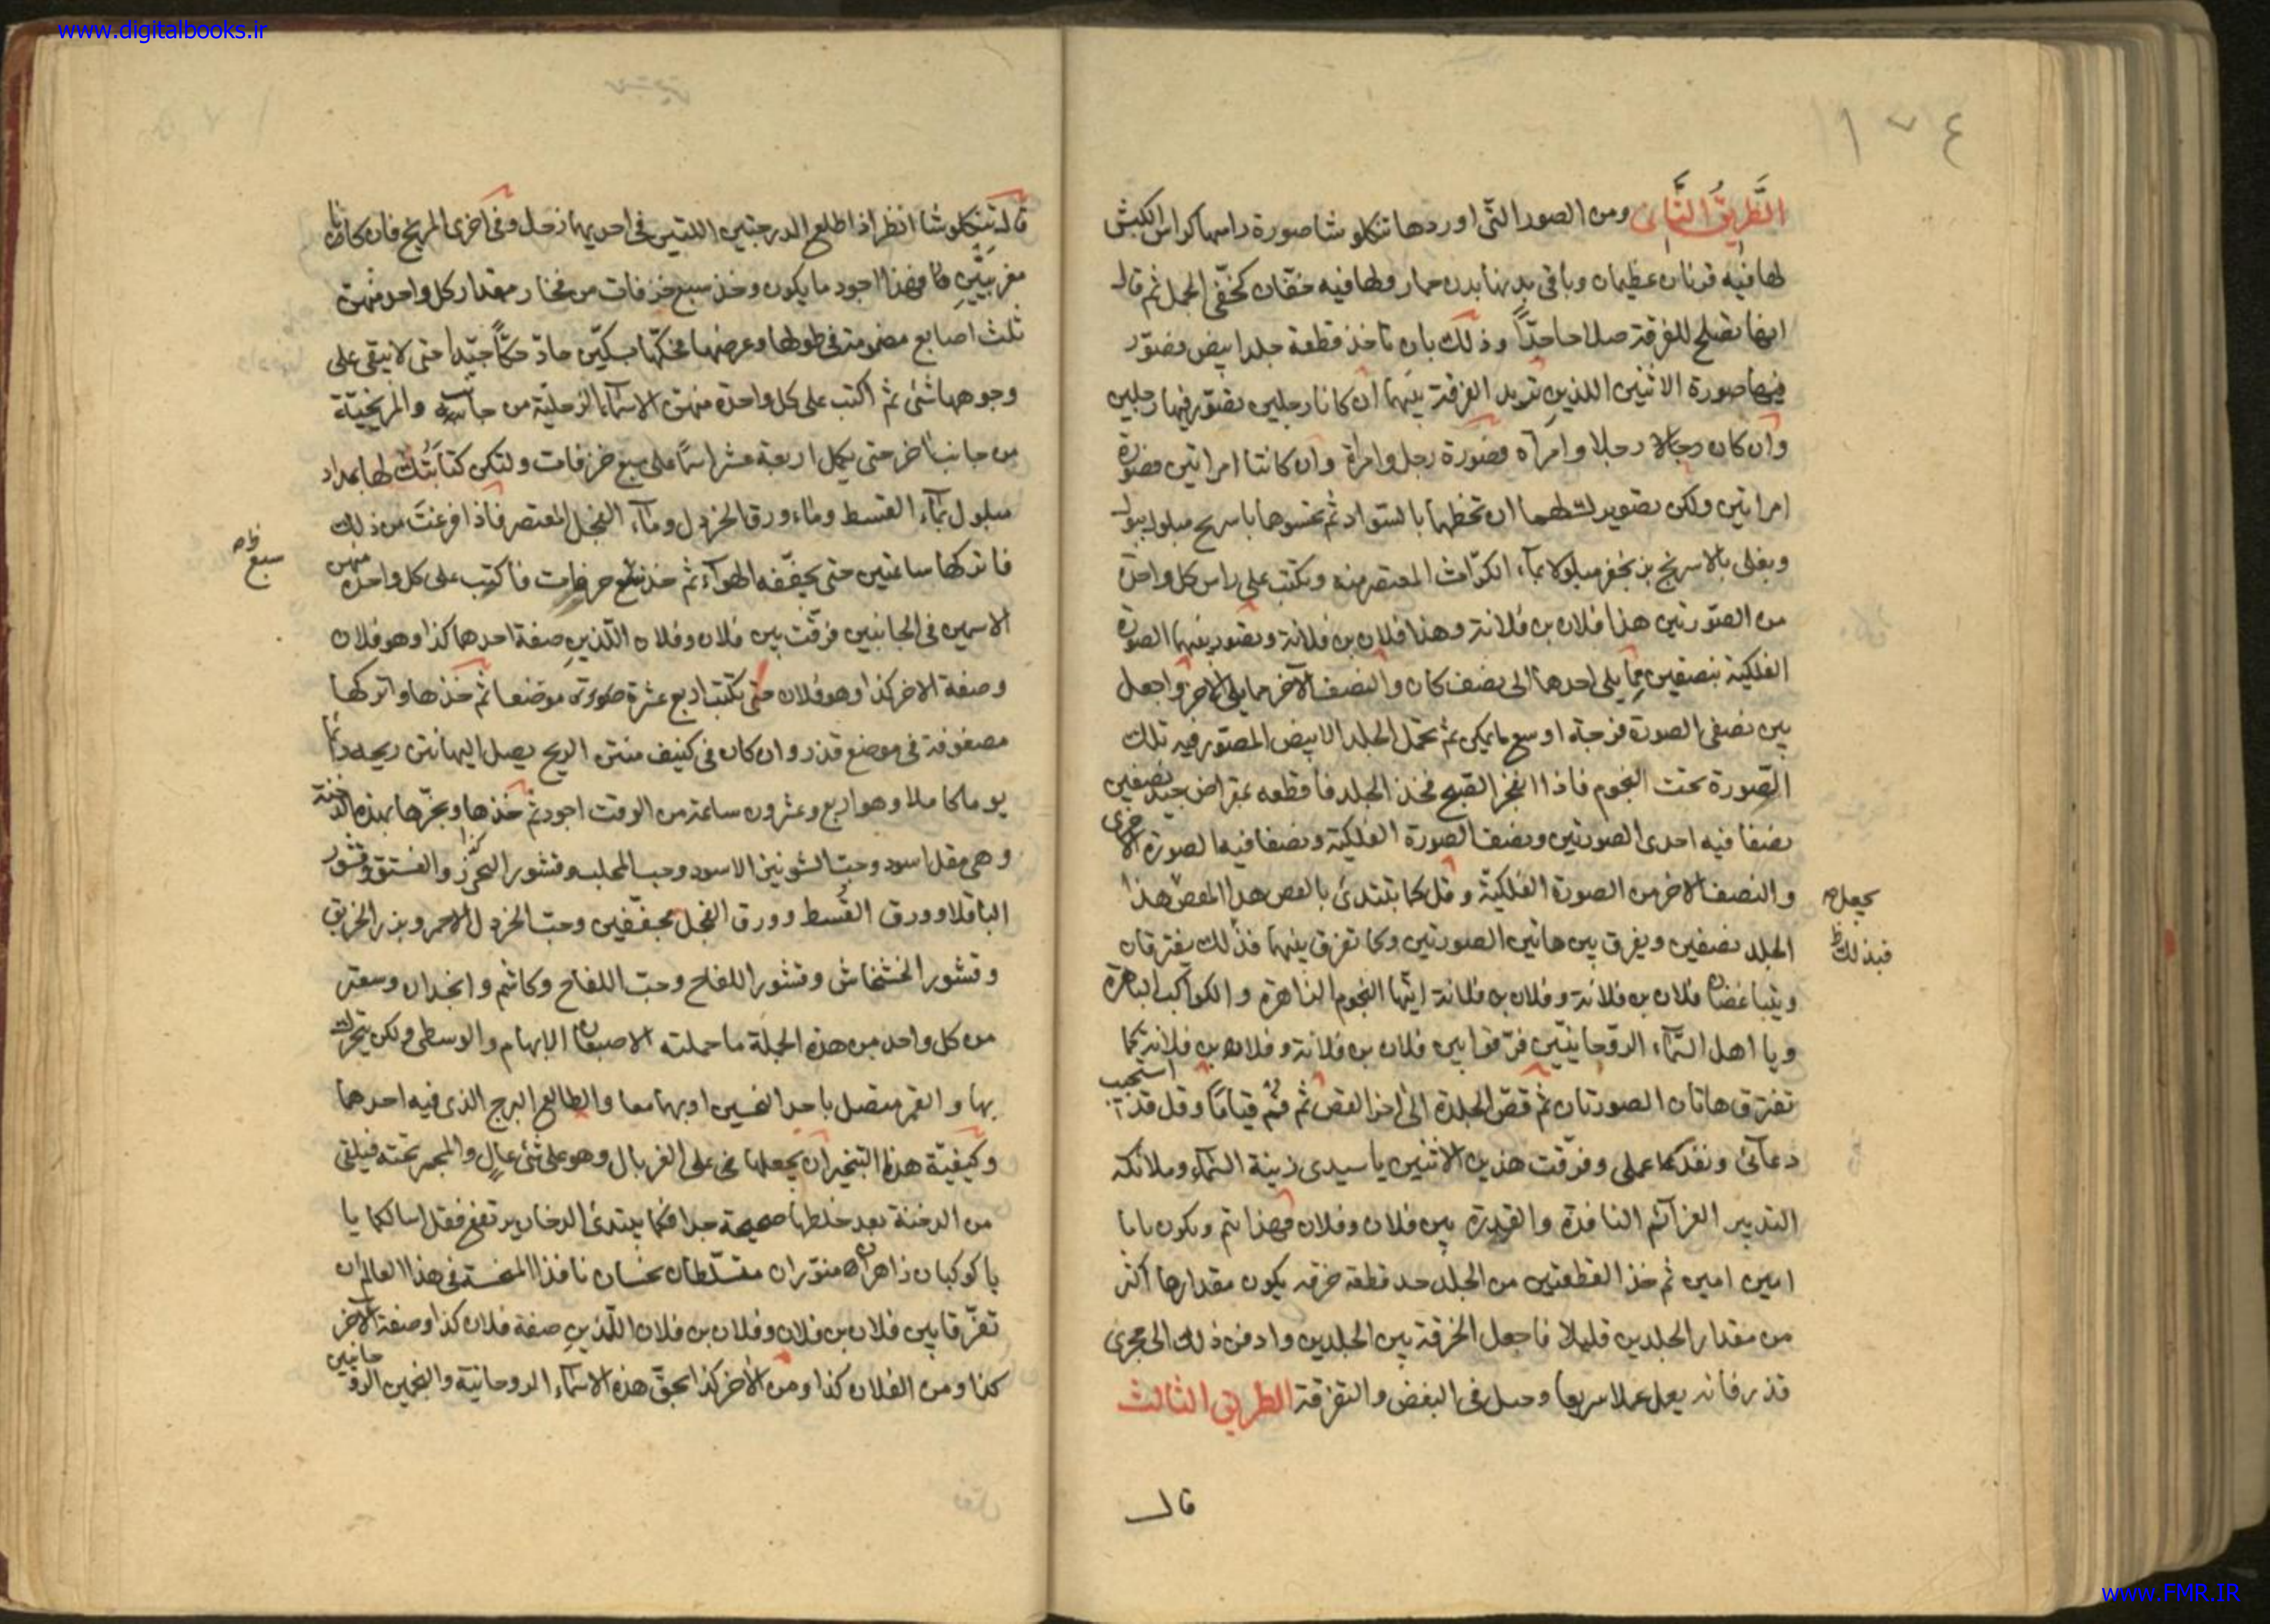 www.digitalbooks.ir
١٧٤
الطَّرِيقُ الثَّانِي ومن الصور التي اوردها تنكلوشا صورة راسها كراس الكبش
لها فيه قرنان عظيمان وباقى بدنها بدن حمار ولها فيه خفّان كخفّى الجمل ثم قال
انها تصلح للفرقة صلاحا جدّاً وذلك بان تاخذ قطعة جلد ابيض فصّور
فيها صورة الاثنين اللذين تريد الفرقة بينهما ان كانا رجلين تصّور فيها رجلين
وان كان رجلا وامرأه فصورة رجل وامراة وان كانتا امراتين فصورة
امراتين ولكن تصويرك لهما ان تخطهما بالسّواد ثم تحشوها باسرنج مبلول ببول
وبغلى بالاسرنج بزنجفر مبلولا بمآء الكرّاث المعتصر منه وتكتب على راس كل واحدة
من الصّورتين هذا فلان بن فلانة وهذا فلان بن فلانة وتصور بينهما الصورة
الفلكية بنصفين مما يلى احدهما الى نصف كان والنصف الآخر مما يلى الاخر واجعل
بين نصفى الصورة فرجة اوسع ما يمكن ثم تحمل الجلد الابيض المصّور فيه تلك
الصّورة تحت النجوم فاذا انفجر الصّبح فخذ الجلد فاقطعه بمقراض جيد نصفين
نصفا فيه احدى الصورتين ونصف الصورة الفلكية ونصفا فيه الصورة الاخرى
والنصف الاخر من الصورة الفلكيّة وقل كما تبتدئ بالقص هذا المقص هذا
يجعل
الجلد نصفين ويفرق بين هاتين الصورتين وكما تفرق بينهما فذلك يفترقان
فبذلك
ويتباغضان فلان بن فلانة وفلان بن فلانة ايتها النجوم الزاهرة والكواكب الباهرة
ويا اهل السّمآء الروّحانيّين فرّقوا بين فلان بن فلانة وفلان بن فلانة كما
تفترق هاتان الصورتان ثم قصّ الجلدة الى اخر القصّ ثم قُم قياماً وقل قد استجيب
دعآئى ونفذ كما عملى وفرّقت هذين الاثنين يا سيدى زينة السّمآء وملائكة
التدبير العزآئم النافذة والقدرة بين فلان وفلان فهذا يتم ويكون بابا
امين امين ثم خذ القطعتين من الجلد خذ قطعة خرقه يكون مقدارها اكثر
من مقدار الجلدين قليلا فاجعل الخرقة بين الجلدين وادفن ذلك الى مجرى
قذر فانه يعمل عملا سريعا وحيل فى البغض والتفرقة الطريق الثالث
قال
قال تنكلوشا انظر اذا طلع الدرجتين اللتين فى احديهما زحل وفى اخرى المريخ فان كانا
مغربيّين فهذا اجود ما يكون وخذ سبع خزفات من فخار مقدار كل واحد منهن
ثلث اصابع مضمومة فى طولها وعرضها فحكّها بسكّين حادّ حكّاً جيّدا حتى لا يبقى على
وجوهها شئ ثم اكتب على كل واحدة منهن الاسمآء الزحلية من جانب والمريخيّة
من جانب اخر حتى يكمل اربعة عشر اسماً على سبع خزفات ولتكن كتابَتُك لها بمداد
مبلول بمآء القسط ومآء ورق الخردل ومآء الفجل المعتصر فاذا فرغتَ من ذلك
فاتركها ساعتين حتى يجفّفه الهوآء ثم خذ سبع خزفات فاكتب على كل واحدة منهن
سبع
الاسمين فى الجانبين فرّقت بين فلان وفلان اللّذين صفة احدهما كذا وهو فلان
وصفة الاخر كذا وهو فلان حتى تكتب اربع عشرة موضعا ثم خذها واتركها
مصفوفة فى موضع قذر وان كان فى كنيف منتن الريح يصل اليها نتن ريحه دائما
يوما كاملا وهو اربع وعشرون ساعة من الوقت اجود ثم خذها وبخّرها بهذه الدخنة
وهى مقل اسود وحبّ الشونيز الاسود وحب المحلب وقشور والفستق وقشور
الباقلا وورق القُسط وورق الفجل مجففّين وحبّ الخردل الاحمر وبزر الخربق
وقشور الخشخاش وقشور اللفاح وحبّ اللفاح وكاشم وانجدان وسعتر
من كل واحد من هذه الجملة ما حملته الاصبعان الابهام والوسطى ولكن تبخرك
بها والقمر متصل باحد النحسين او بهما معا والطالع البرج الذى فيه احدهما
وكيفيّة هذا التبخير ان يجعلها على الغربال وهو على شئ عالٍ والمجمر تحته فيلقى
من الدخنة بعد خلطها صحيحة جدا فكما يبتدئ الدخان يرتفع فقل اسالكما يا
يا كوكبان زاهران منوّران متسلّطان نحسان نافذا المنحسة فى هذا العالم ان
تفرّقا بين فلان بن فلان وفلان بن فلان اللّذين صفة فلان كذا وصفة الآخر
كذا ومن الفلان كذا ومن الأخر كذا بحقّ هذه الاسمآء الروحانية والنجمين الروحانيين
www.FMR.IR